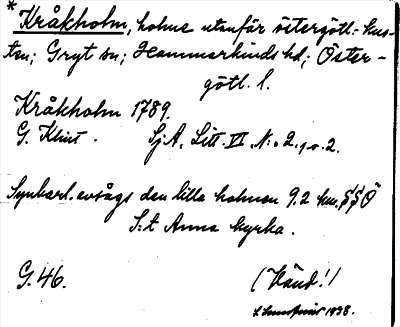 * Kråkholm, holme utanför östergötl.-kus-
ten; Gryt sn; Hammarkinds hd; Öster-
götl. l.
Kråkholm 1789.
G. Klint. Sj.A, Litt. VI, N:o 2, p. 2.
Synbarl. avsågs den lilla holmen 9.2 km. SSÖ
S:t Anna kyrka.
G. 46. (Vänd!)
1938.